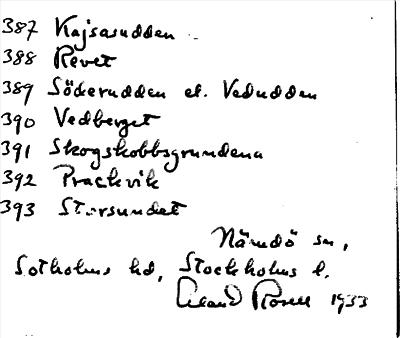 387 Kajsasudden
388 Revet
389 Söderudden el. Vedudden
390 Vedberget
391 Skogskobbsgrundena
392 Prackvik
393 Storsundet
Nämdö sn,
Sotholms hd, Stockholms l.
Rosell 1933